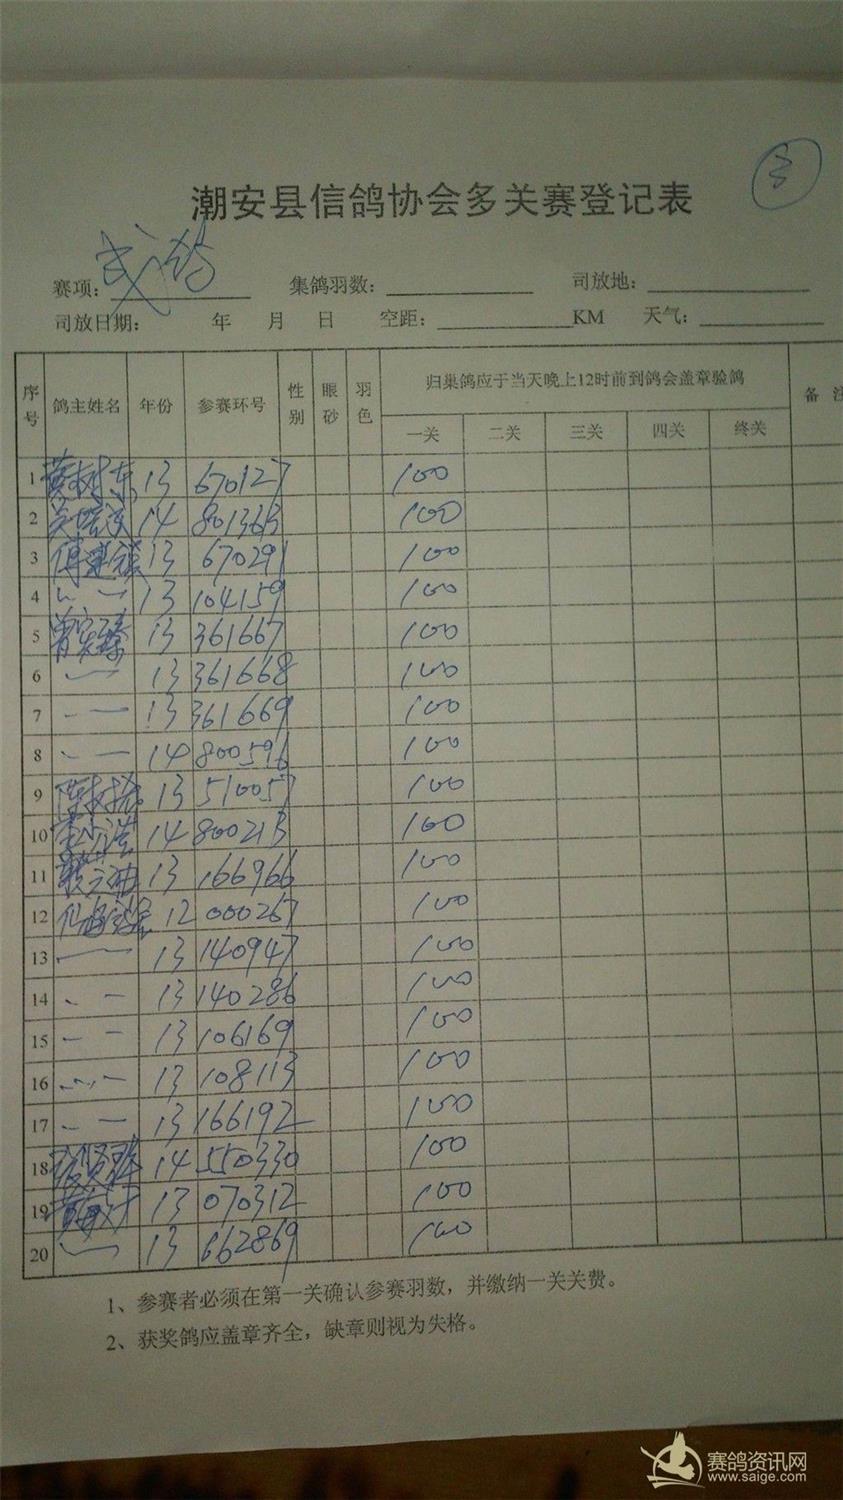 潮安县信鸽协会多关赛登记表
赛项： 集鸽羽数： 司放地：
司放日期： 年 月 日 空距： KM 天气：
序号 鸽主姓名 年份 参赛环号 性别 眼砂 羽色 归巢鸽应于当天晚上12时前到鸽会盖章验鸽 备 注
一关 二关 三关 四关 终关
1 黄树东 13 670127 100
2 14 801363 100
3 13 670291 100
4 13 104159 100
5 13 361667 100
6 13 361668 100
7 13 361669 100
8 14 800596 100
9 13 510057 100
10 14 800213 100
11 13 166966 100
12 12 000267 100
13 13 140947 100
14 13 140286 100
15 13 106169 100
16 13 108113 100
17 13 166192 100
18 14 550330 100
19 13 070312 100
20 13 662869 100
1、参赛者必须在第一关确认参赛羽数，并缴纳一关关费。
2、获奖鸽应盖章齐全，缺章则视为失格。
赛鸽资讯网
www.saige.com